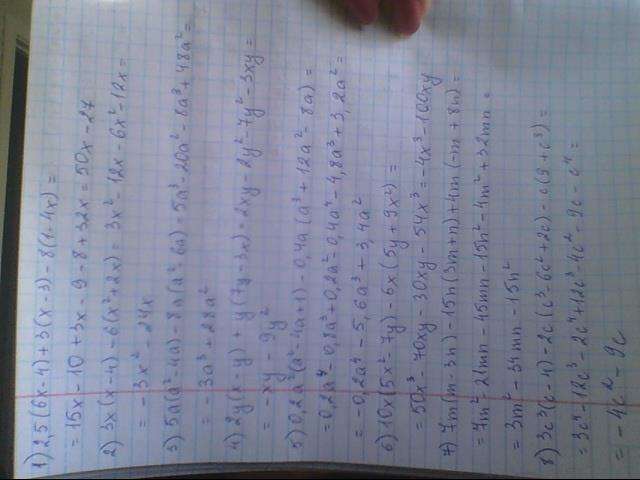 1) 2,5(6x-4)+3(x-3)-8(1-4x)=
=15x-10+3x-9-8+32x=50x-27
2) 3x(x-4)-6(x²+2x)=3x²-12x-6x²-12x=
=-3x²-24x
3) 5a(a²-4a)-8a(a²-6a)=5a³-20a²-8a³+48a²=
=-3a³+28a²
4) 2y(x-y)+y(7y-3x)=2xy-2y²-7y²-3xy=
=-xy-9y²
5) 0,2a²(a²-4a+1)-0,4a(a³+12a²-8a)=
=0,2a⁴-0,8a³+0,2a²-0,4a⁴-4,8a³+3,2a²=
=-0,2a⁴-5,6a³+3,4a²
6) 10x(5x²-7y)-6x(5y+9x²)=
=50x³-70xy-30xy-54x³=-4x³-100xy
7) 7m(m-3n)-15n(3m+n)+4m(-m+8n)=
=7m²-21mn-15mn-15n²-4m²+32mn=
=3m²-34mn-15n²
8) 3c³(c-4)-2c(c³-6c²+2c)-c(9+c³)=
=3c⁴-12c³-2c⁴+12c³-4c²-9c-c⁴=
=-4c²-9c